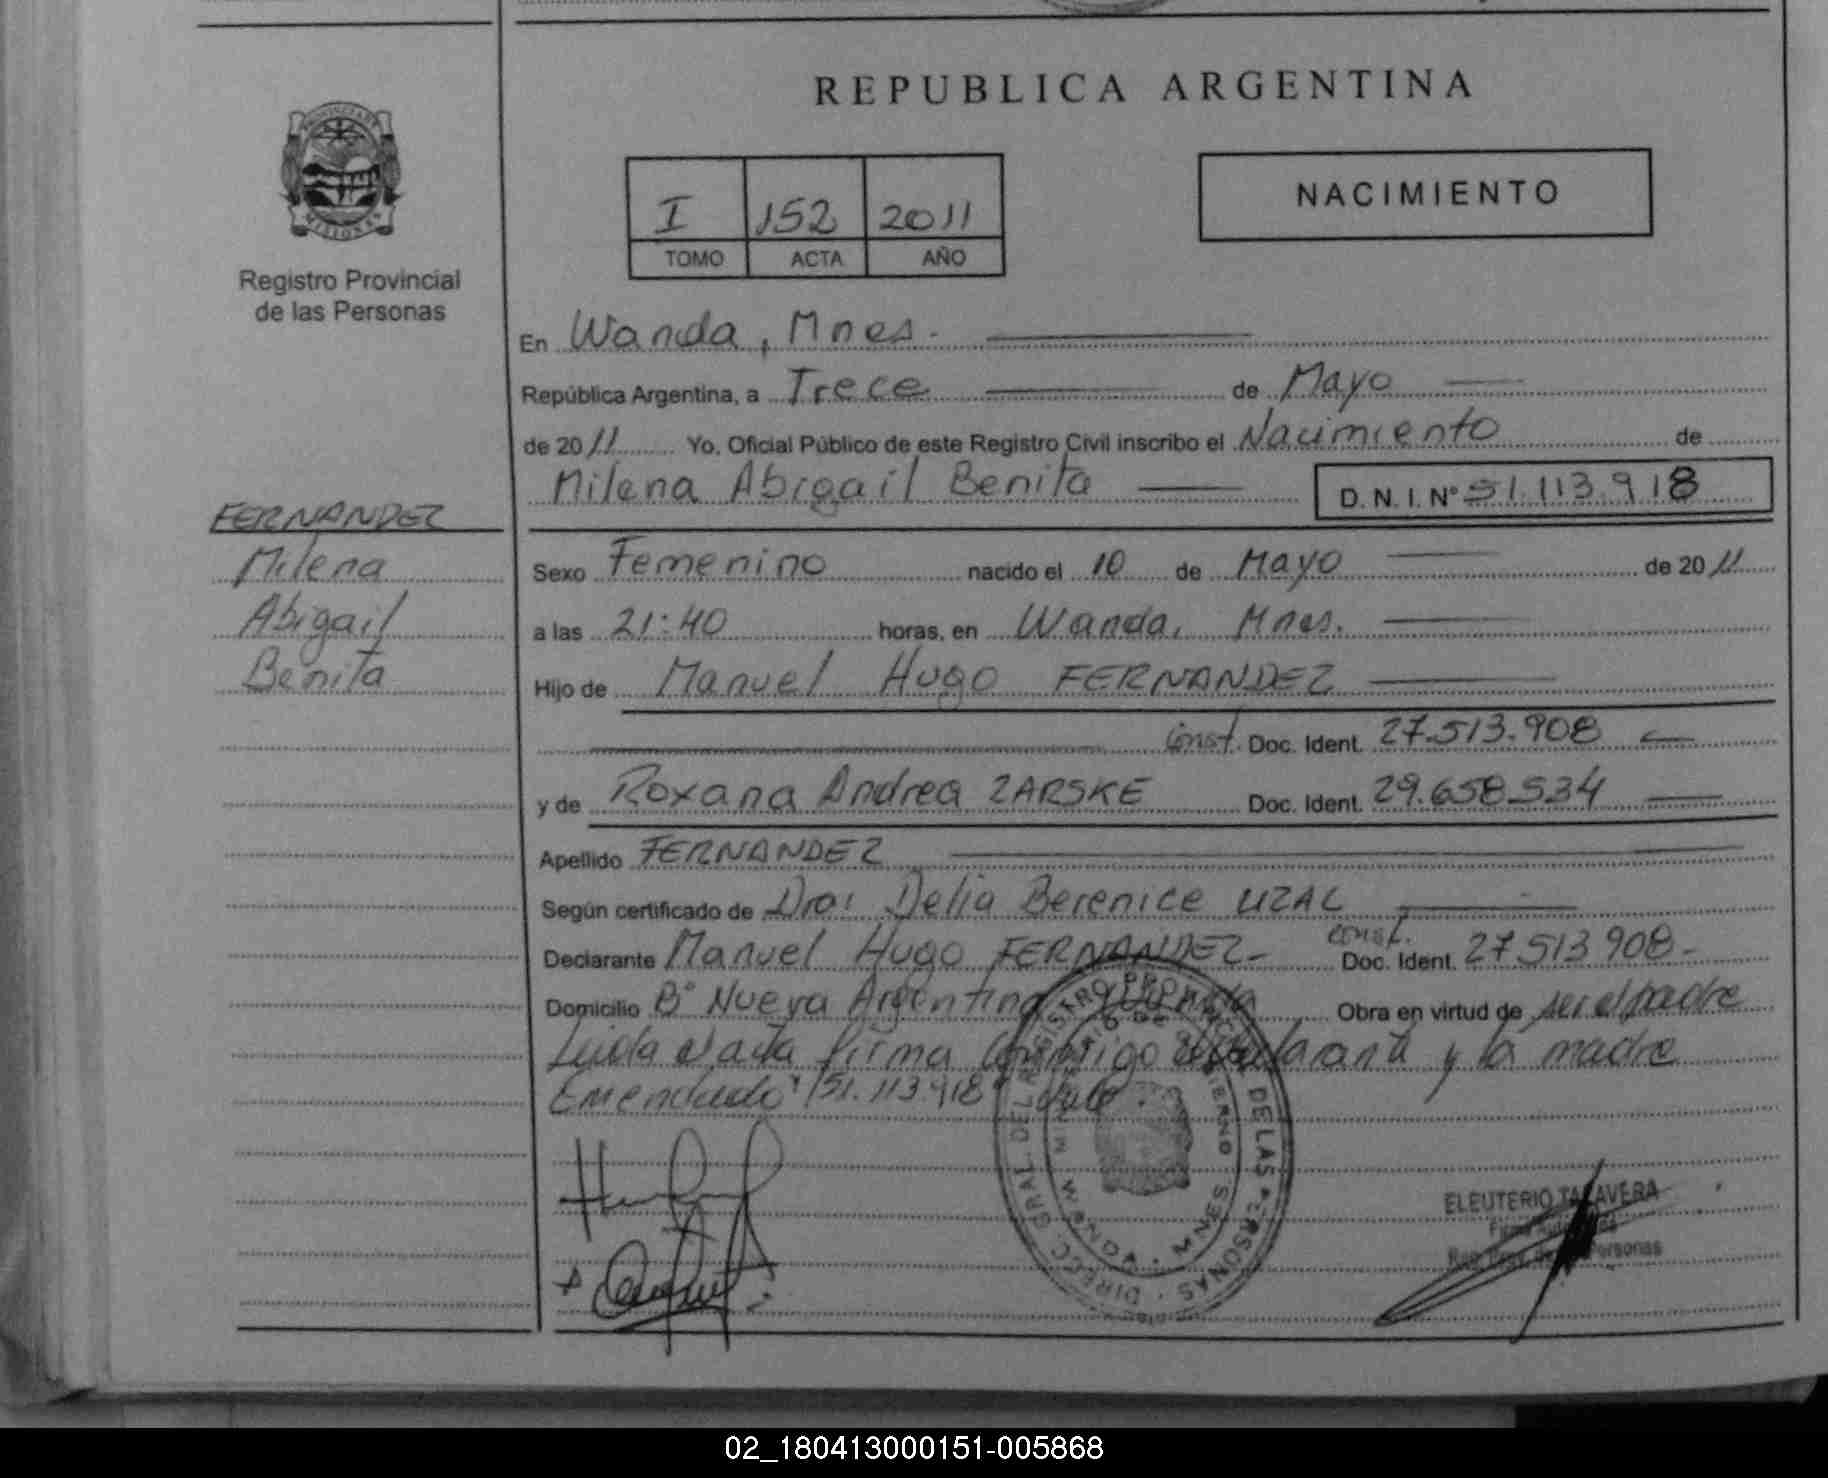 REPUBLICA ARGENTINA
PROVINCIA DE MISIONES
Registro Provincial
de las Personas
I 152 2011
TOMO ACTA AÑO
NACIMIENTO
En Wanda, Mnes.
República Argentina, a Trece de Mayo
de 2011 Yo, Oficial Público de este Registro Civil inscribo el Nacimiento de
Milena Abigail Benita D.N.I. Nº 51.113.918
FERNANDEZ
Milena
Abigail
Benita
Sexo Femenino nacido el 10 de Mayo de 2011
a las 21:40 horas, en Wanda, Mnes.
Hijo de Manuel Hugo FERNANDEZ
const. Doc. Ident. 27.513.908
y de Roxana Andrea ZARSKE Doc. Ident. 29.658.534
Apellido FERNANDEZ
Según certificado de Dra: Delia Berenice UZAL
Declarante Manuel Hugo FERNANDEZ const. Doc. Ident. 27.513.908
Domicilio Bº Nueva Argentina Wanda Obra en virtud de ser el padre
Leida el acta firma conmigo el declarante y la madre
Emendado "51.113.918" Vale.
DIREC. GRAL. DEL REGISTRO PROVINCIAL DE LAS PERSONAS
MINISTERIO DE GOBIERNO
WANDA - MNES.
ELEUTERIO TALAVERA
Reg. Prov. de las Personas
02_180413000151-005868